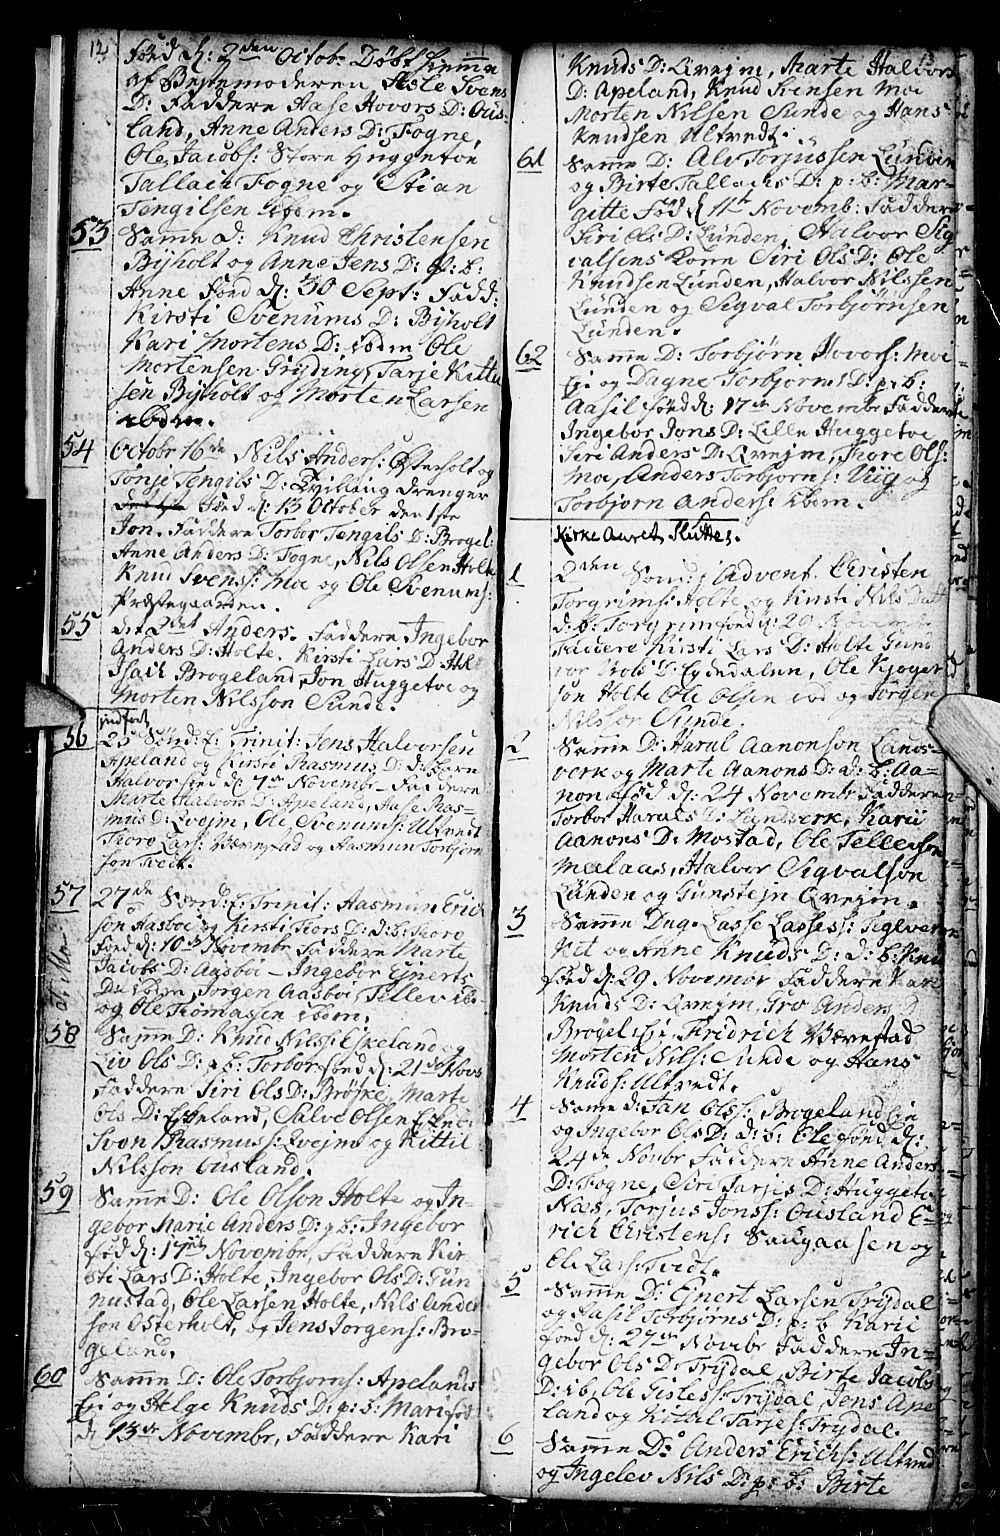 12
föed d: 2den Octob: Döbt hiemme
af Bestemoderen, Asle Svens
D: Faddere Aase Hovors D: Ous-
land, Anne Anders D: Fogne,
Ole Jacobs: Store Huggetoe
Tallach Fogne og Stian
Tengilsen ibdem.
53
Samme d: Knud Christensen
Bijholt og Anne Jens D: p: b:
Anne föed d: 30 Sept: Fadd:
Kirsti Svenums D: Bijholt
Kari Mortens D: ibdem Ole
Mortensen Grijding, Tarje Kittil
sen Bijholt og Morten Larsen
ibdem.
54
Octobr 16de Nils Anders: Österholt og
Tonje Tengils D: Tvilling drenger
föed d: 13 October den 1ste
Jon. Faddere Torbor Tengils D: Brogel:
Anne Anders D: Fogne, Nils Olsen Holte
Knud Svens: Moe og Ole Svenums:
Præstegaarden.
55
det 2det Anders. Faddere Ingebor
Anders D: Holte. Kirsti Lars D: Holt
Isach Brogeland, Jon Huggetoe og
Morten Nilsson Sunde.
56
indfört
25 Sönd: f: Trinit: Jens Halvorsen
Apeland og Kirsti Rasmus D: d: b:
Halvor föed d: 7de Novembr Faddere
Marte Halvors D: Apeland, Aase Ras-
mus D: Qvejm, Ole Svenums: Ultvedt
Thoro Lars: Berrefad og Aasmun Torbjörn
son Tvedt.
57
27de Sönd: f: Trinit: Aasmun Erich
sön Aasboe og Kirsti Tiors D: d: b: Thoro
föed d: 10de Novembr Faddere Marte
Jacobs D: Aasboe Ingebor Ejnerts
D: ibdem, Jorgen Aasboe, Tellev ibd
og Ole Thomassen ibdem.
58
Samme D: Knud Nils: Eskeland og
Liv Ols D: p b: Torbor föed d: 21de Novb
Faddere Siri Ols D: Bröske, Marte
Ols D: Eskeland, Salve Olsen Eskel:
Sven Rasmus: Qvejm og Kittil
Nilsson Ousland.
59
Samme D: Ole Olson Holte og In-
gebor Marie Anders D: p b: Ingebor
föed d: 17de Novembr, Faddere Kir
sti Lars D: Holte, Ingebor Ols D: Gun
nustad, Ole Larsen Holte, Nils Ander
sön Osterholt, og Jens Jorgens: Bro-
geland.
60
Samme D: Ole Torbjorns: Apelands
Eje og Helge Knuds D: p: b: Mari föd
d 13de Novembr, Faddere Kari
13
Knuds D: Qvejm, Marte Halvors
D: Apeland, Knud Svensen Moe
Morten Nilsen Sunde og Hans
Knudsen Ultvedt.
61
Samme D: Ale Torjussen Lunden
og Birte Tallachs D: p: b: Mar-
gitte Föd d 11te Novemb: Faddere
Siri Ols D: Lunden, Halvor Sig
valsens Kone Siri Ols D: Ole
Knudsen Lunden, Halvor Nilssen
Lunden og Sigval Torbjörnsen
Lunden.
62
Samme D: Torbjörn Hovors: Moe
Eje og Dagne Torbjorns D: p: b:
Aasil föed d: 17de Novembr Faddere
Ingebor Jons D: Lille Huggetoe
Siri Anders D: Qvejm, Thore Ols:
Moe, Anders Torbjorns: Viig og
Torbjorn Anders: ibem.
Kirke Aaret Sluttes.
1
2den Sönd: i Advent. Christen
Torgrims: Holte og Kirsti Nils Datt
d: b: Torgrim föed d: 20 Novembr
Faddere Kirsti Lars D: Holte Gund
vor Nils D: Egdedalen, Ole Kjöger
sön Holte Ole Olsen ibd og Jorgen
Nilsson Sunde.
2
Samme D: Harul Aanonson Lands-
verk og Marte Aanons D: d: b: Aa-
non föed d: 24 Novembr Faddere
Torbor Haruls D: Landsverk, Karii
Aanons D: Mostad, Ole Tellevson
Meelaas, Halvor Sigvalson
Lunden og Gunstejn Qvejm.
3
Samme Dag. Lasse Lasses: Teglverk
Kit og Anne Knuds D: d: b: Knu
föed d: 29 Novembr Faddere Kari
Knuds D: Qvejm, Gro Anders D
Brogel: Eje, Fridrich Berrefad
Morten Nils: Sunde og Hans
Knuds: Ultvedt.
4
Samme d: Jan Ols: Brogeland Eje
og Ingebor Ols D: d: b: Ole föed d:
24de Novbr Faddere Anne Anders
D: Fogne, Siri Tarjes D: Huggetoe
Næs, Torjus Jons: Ousland E-
rich Christens: Saugaasen og
Ole Lars: Tvedt.
5
Samme D: Ejnert Larsen Trijdal
og Aasil Torbjörns D: p: b Karii
föed d: 27de Novbr Faddere In-
gebor Ols D Trijdal, Birte Jacobs
D: ib, Ole Gisles: Trijdal, Jens Ape
land og Kital Tarjes: Trijdal.
6
Samme D: Anders Erichs: Ultved
og Ingelev Nils D: p: b: Birte